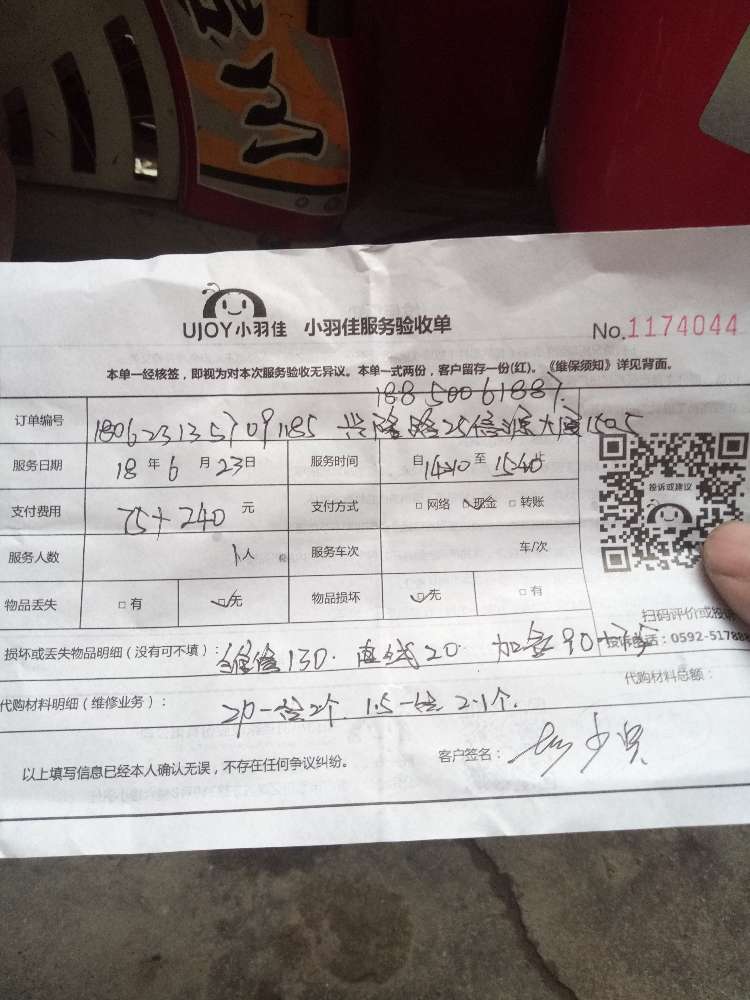 UJOY小羽佳 小羽佳服务验收单 No.1174044
本单一经核签，即视为对本次服务验收无异议。本单一式两份，客户留存一份(红)。《维保须知》详见背面。
18850061887.
订单编号 1806231357091185 兴隆路25信源大厦1505
服务日期 18年6月23日 服务时间 自14:10至15:40止
投诉或建议
支付费用 75+240元 支付方式 □网络 □现金 □转账
服务人数 1人 服务车次 车/次
物品丢失 □有 □无 物品损坏 □无 □有
扫码评价或投诉
损坏或丢失物品明细（没有可不填）： 维修130. 直线20. 加氢90 电话：0592-5178
代购材料明细（维修业务）： 2P一台2个. 1.5一台2.1个. 代购材料总额：
以上填写信息已经本人确认无误，不存在任何争议纠纷。 客户签名：